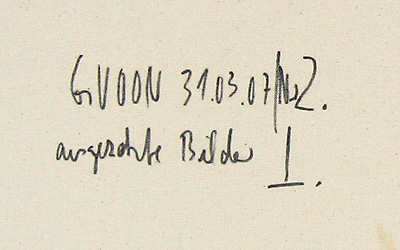 GiVOON 31.03.07/No2.
ausgesetzte Bilder 1.